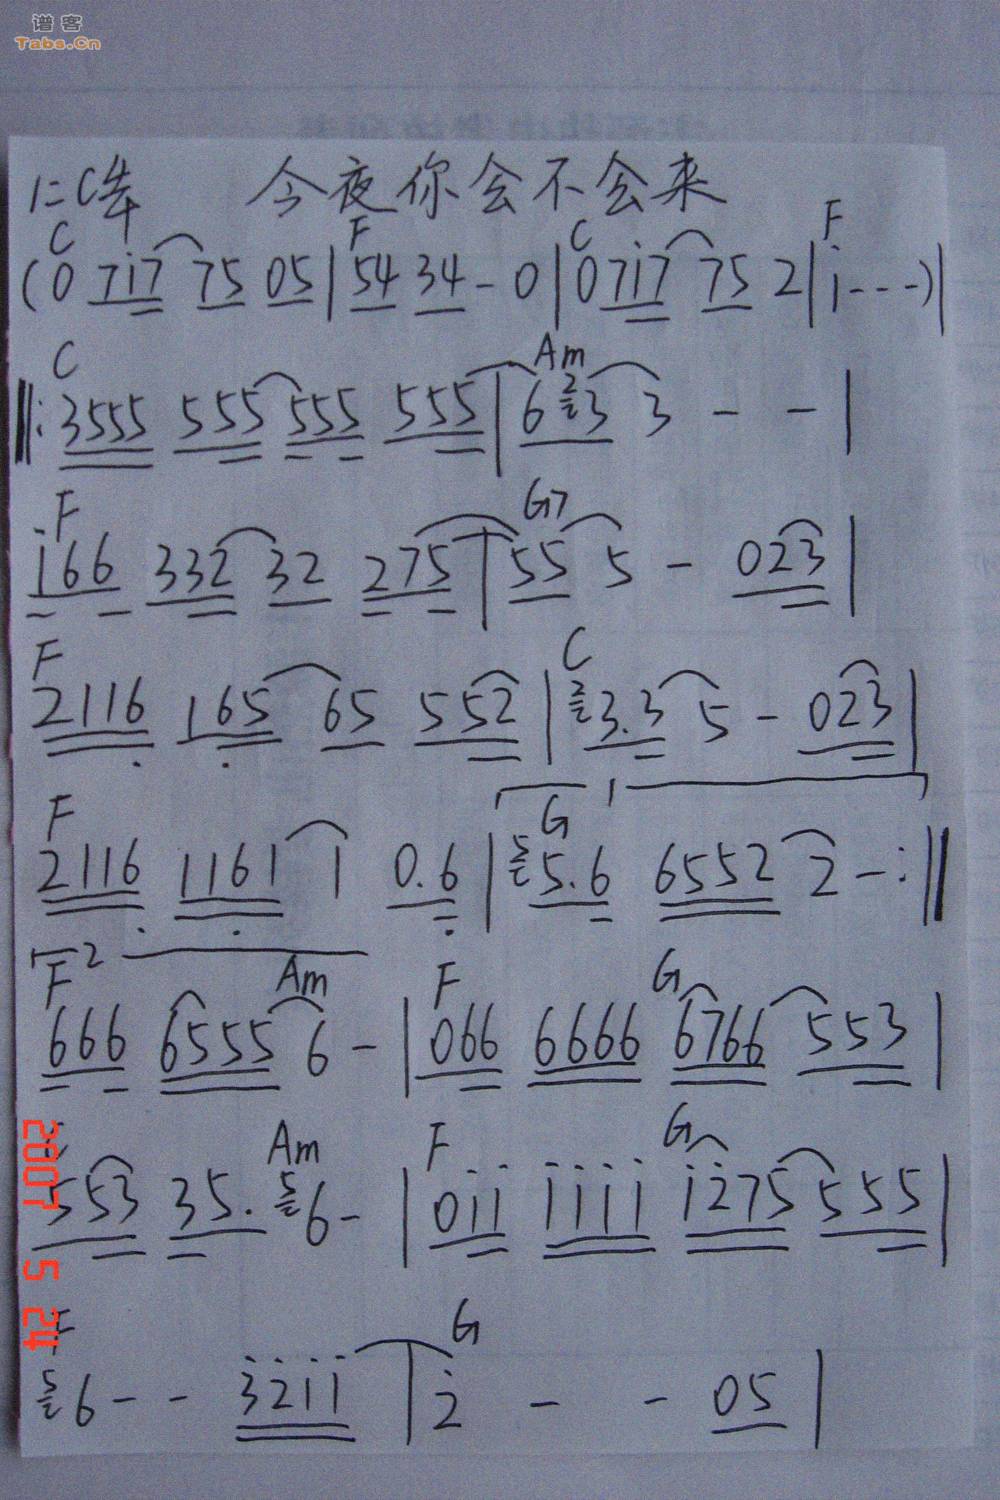 谱客
Tabs.Cn
1=C 4/4 今夜你会不会来
C F C F
(0 717 75 05 | 54 34 - 0 | 0 717 75 2 | i - - -) |
C Am
‖: 3555 555 555 555 | 6 2 3 3 - - |
F G7
i66 332 32 275 | 55 5 - 023 |
F C
2116 165 65 552 | 2 3.3 5 - 023 |
1
F G
2116 1161 1 0.6 | 5 5.6 6552 2 - :‖
2
F Am F G
666 6555 6 - | 066 6666 6766 553 |
Am F G
553 35. 5 6 - | 0ii iiii i275 555 |
F G
5 6 - - 32ii | 2 - - 05 |
2007 5 24